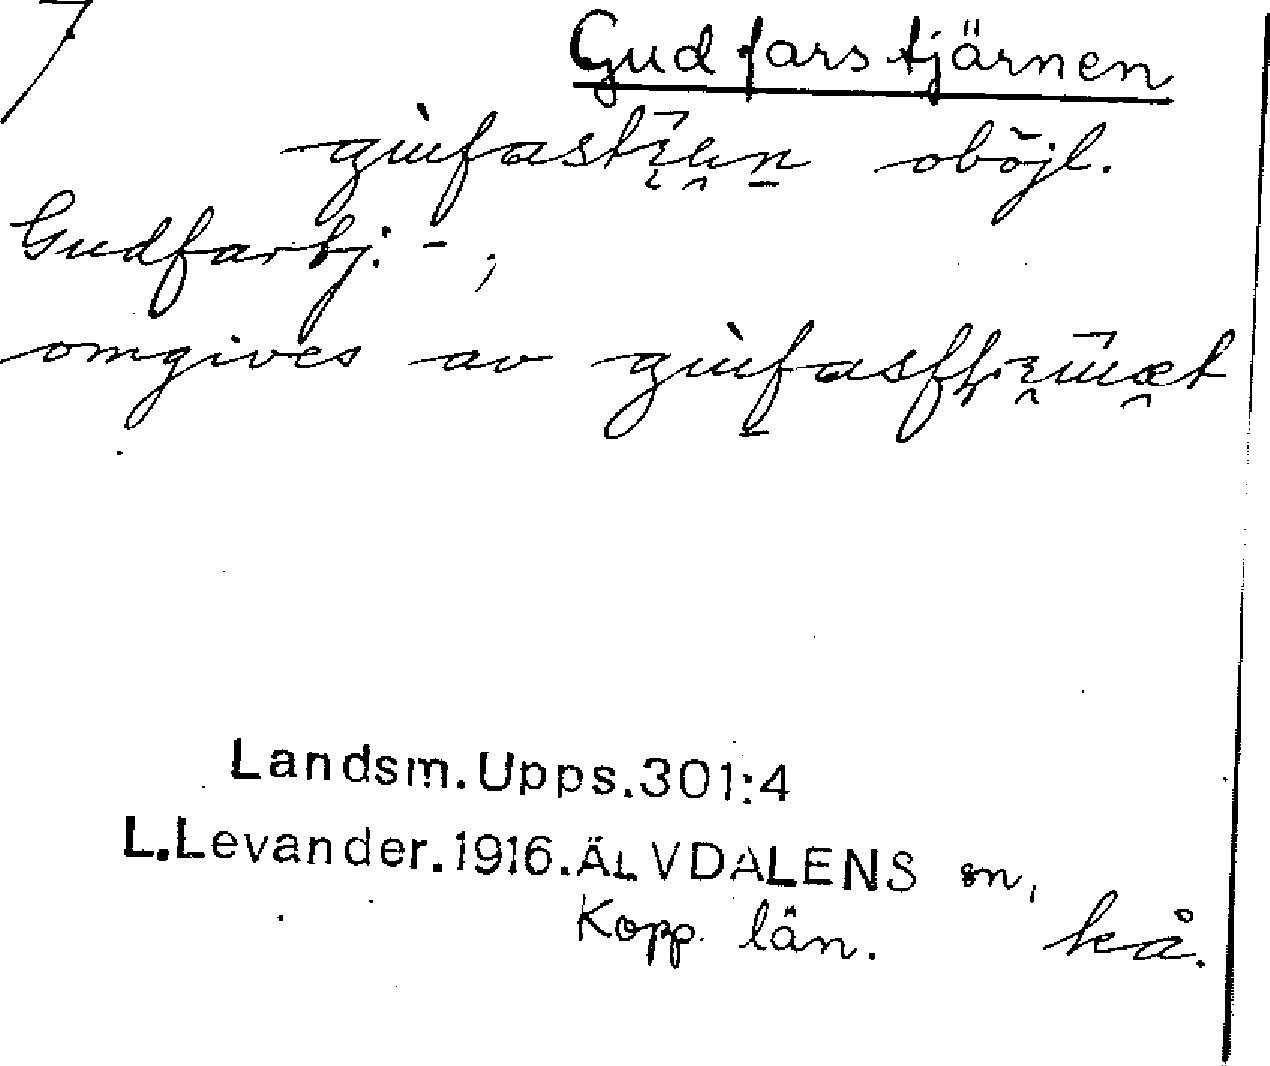 Gudfarstjärnen
oböjl.
Gudfarstj. - ;
omgives av
Landsm.Upps.301:4
L.Levander.1916.ÄLVDALENS sn,
Kopp. län. kå.